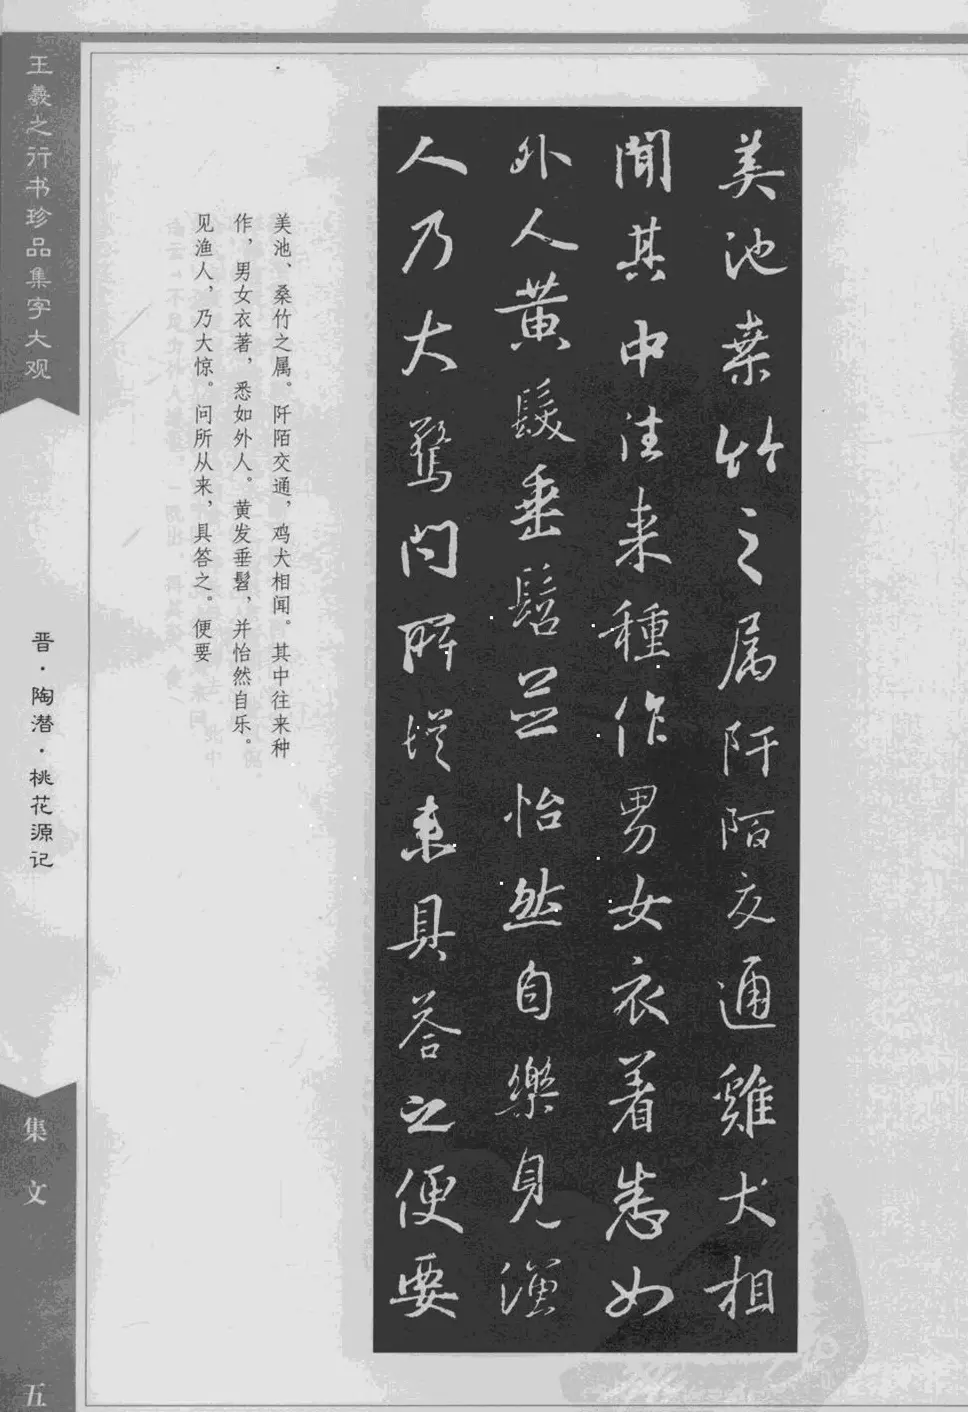 美池桑竹之属阡陌交通雞犬相
聞其中往来種作男女衣着悉如
外人黄髮垂髫並怡然自樂見漁
人乃大驚問所從来具答之便要
美池、桑竹之属。阡陌交通，鸡犬相闻。其中往来种
作，男女衣著，悉如外人。黄发垂髫，并怡然自乐。
见渔人，乃大惊。问所从来，具答之。便要
王羲之行书珍品集字大观
晋·陶潜·桃花源记
集文
五